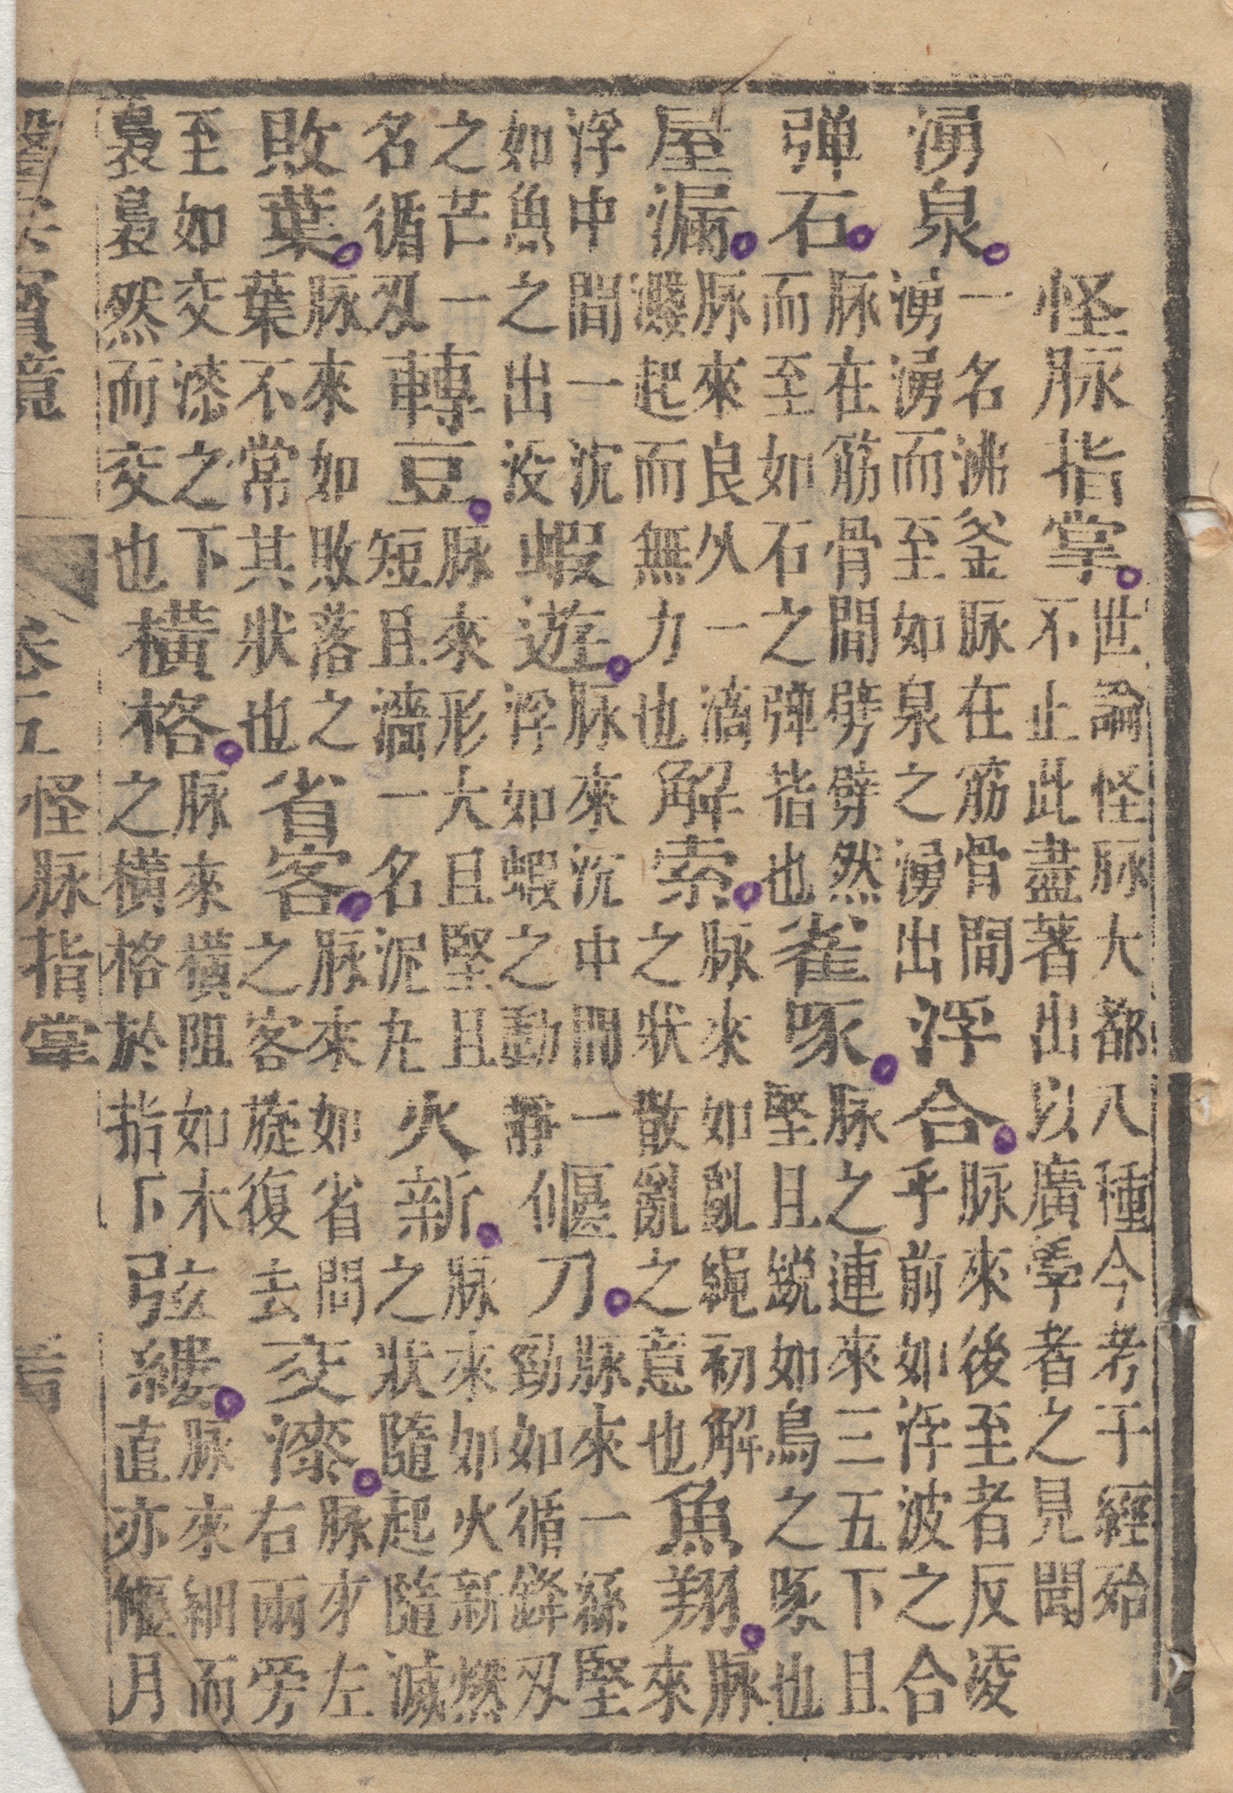 怪脉指掌 世論怪脉大都八種今考于經殆不止此盡著出以廣學者之見聞
湧泉 一名沸釜脉在筋骨間湧湧而至如泉之湧出 浮合 脉來後至者反凌乎前如浮波之合
弹石 脉在筋骨間劈劈然而至如石之弹指也 雀啄 脉之連來三五下且堅且鋭如鳥之啄也
屋漏 脉來良久一滴濺起而無力也 解索 脉來如亂繩初解之狀散亂之意也 魚翔 脉來
浮中間一沉如魚之出沒 蝦遊 脉來沉中間一浮如蝦之動靜 偃刀 脉來一絲堅勁如循鋒刄
之芒一名循刄 轉豆 脉來形大且堅且短且濇一名泥丸 火新 脉來如火新燃之狀隨起隨滅
敗葉 脉來如敗落之葉不常其狀也 省客 脉來如省問之客旋復去 交漆 脉來左右兩旁
至如交漆之下裊裊然而交也 橫格 脉來橫阻如木之橫格於指下 弦縷 脉來細而直亦偃月
卷五 怪脉指掌